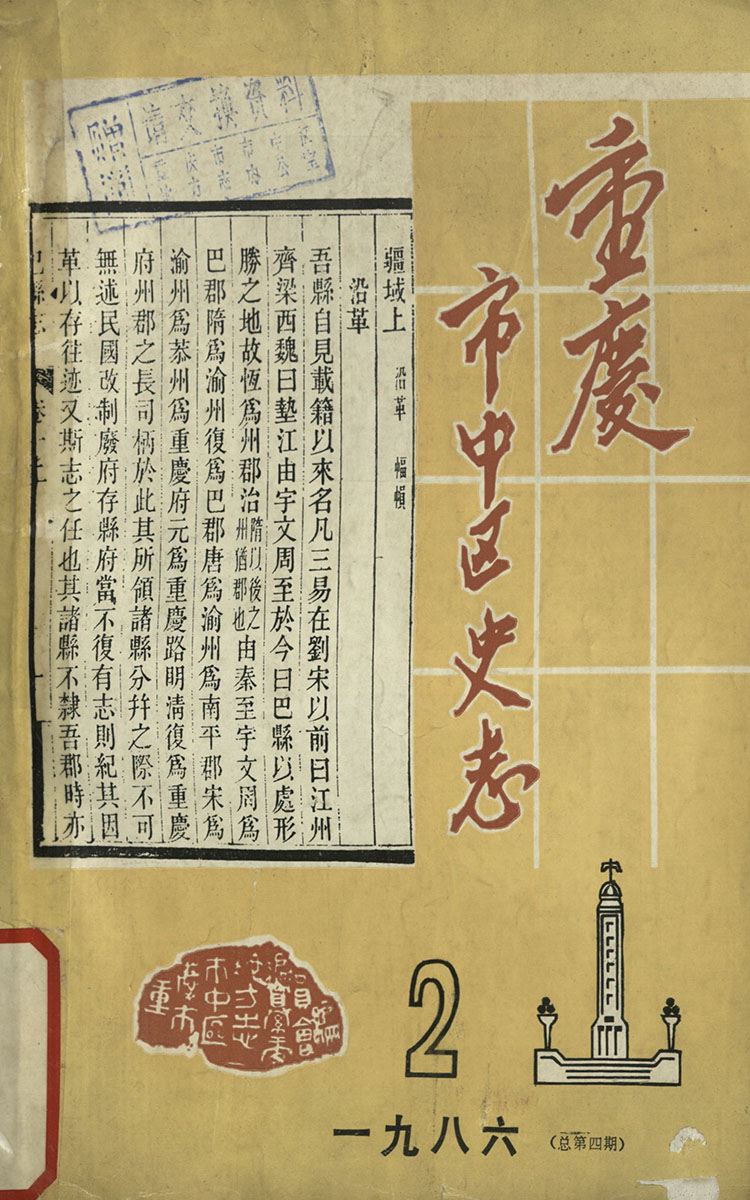 重慶
市中区史志
請交換资料
疆域上 沿革 幅幀
沿革
吾縣自見載籍以來名凡三易在劉宋以前曰江州
齊梁西魏曰墊江由宇文周至於今曰巴縣以處形
勝之地故恆爲州郡治隋以後之州猶郡也由秦至宇文周爲
巴郡隋爲渝州復爲巴郡唐爲渝州爲南平郡宋爲
渝州爲恭州爲重慶府元爲重慶路明淸復爲重慶
府州郡之長司柄於此其所領諸縣分幷之際不可
無述民國改制廢府存縣府當不復有志則紀其因
革以存往迹又斯志之任也其諸縣不隸吾郡時亦
巴縣志 卷一上
2
一九八六
(总第四期)